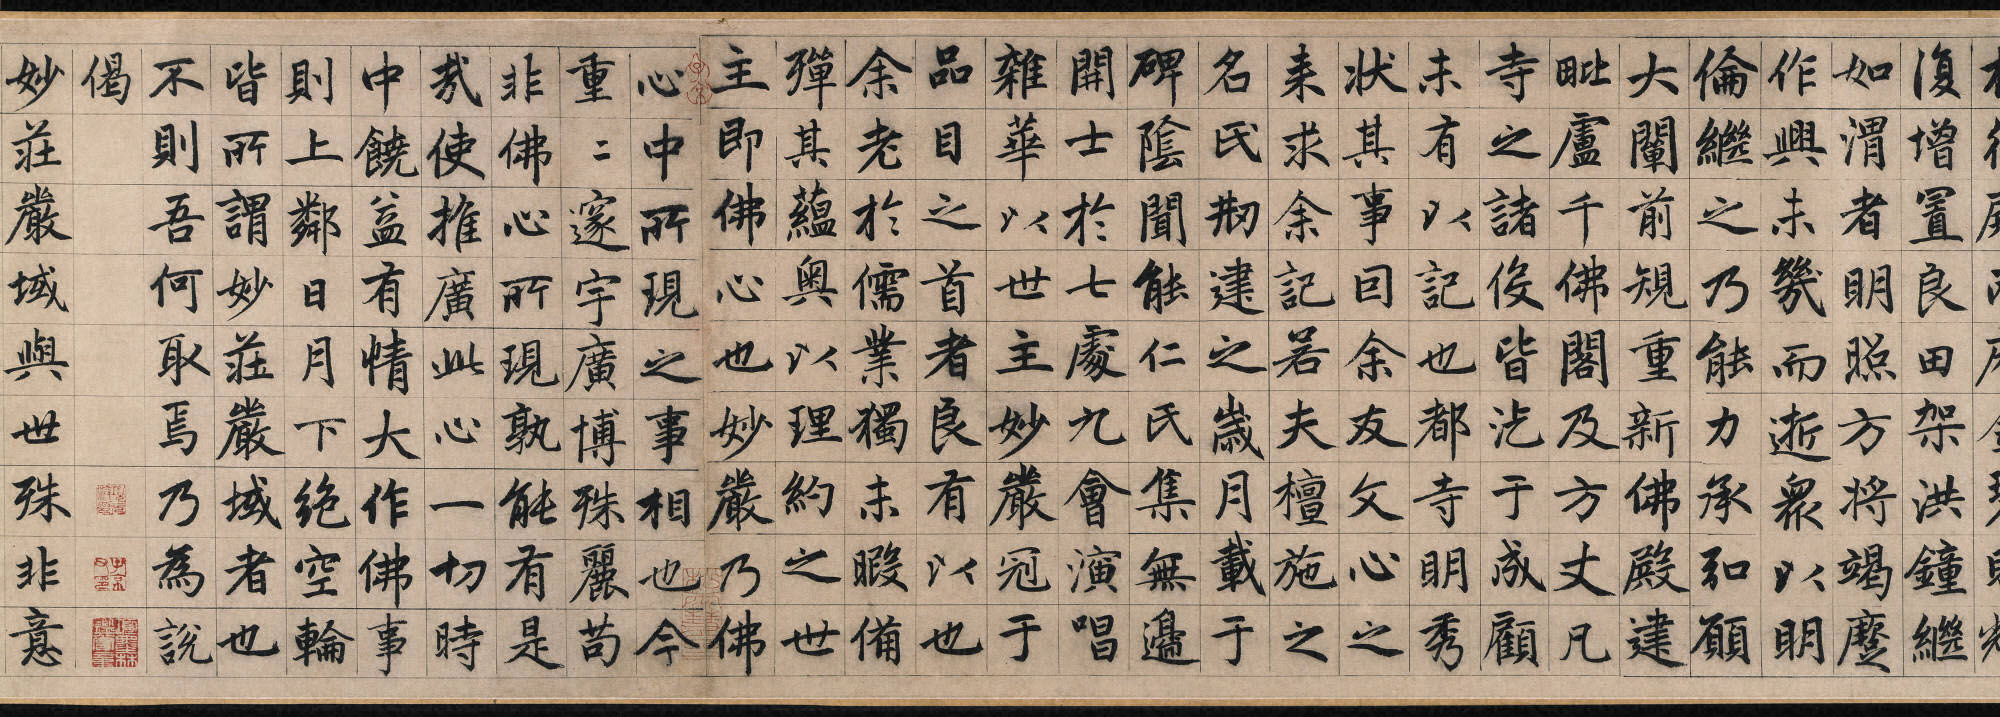 復增置良田架洪鐘繼
如渭者明照方將竭蹷
作興未幾而逝衆以明
倫繼之乃能力承弘願
大闡前規重新佛殿建
毗盧千佛閣及方丈凡
寺之諸役皆汔于成顧
未有以記也都寺明秀
狀其事囙余友文心之
来求余記若夫檀施之
名氏剏建之歲月載于
碑陰聞能仁氏集無邊
開士於七處九會演唱
雜華以世主妙嚴冠于
品目之首者良有以也
余老於儒業獨未暇備
殫其蘊奧以理約之世
主即佛心也妙嚴乃佛
心中所現之事相也今
重二邃宇廣博殊麗苟
非佛心所現孰能有是
哉使推廣此心一切時
中饒益有情大作佛事
則上鄰日月下絕空輪
皆所謂妙莊嚴域者也
不則吾何取焉乃為說
偈
妙莊嚴域與世殊非意